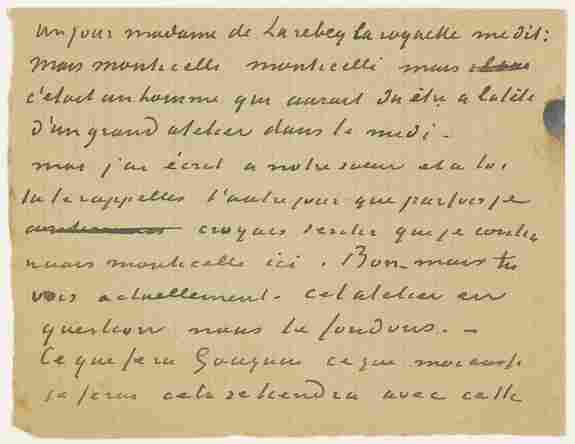 un jour madame de Larebey laroquette me dit:
mais monticelli monticelli mais
c'était un homme qui aurait du être a la tête
d'un grand atelier dans le midi –
moi j'ai ecrit a notre soeur et a toi
tu te rappelles l'autre jour que parfois je
croyais sentir que je conti
nuais monticelli ici. Bon – mais tu
vois actuellement – cet atelier en
question nous le fondons. –
Ce que fera Gauguin ce que moi aussi
je ferai cela se tiendra avec cette